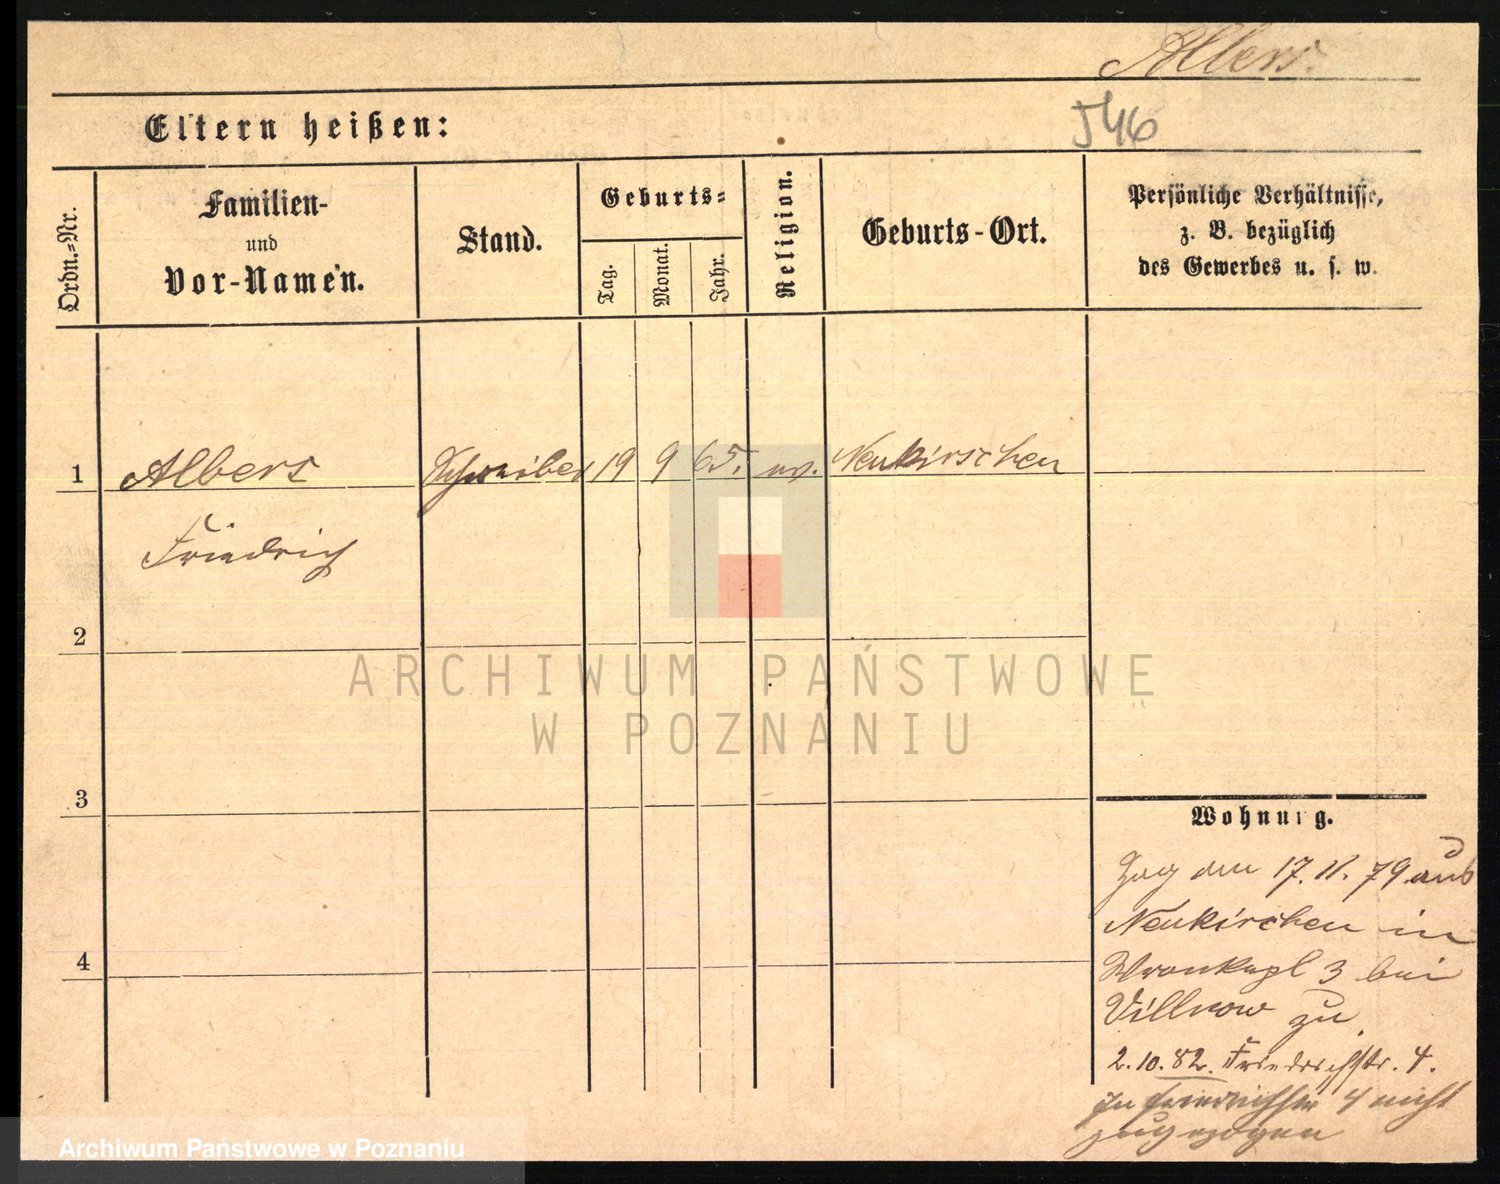 Albers.
Eltern heißen:
546
Ordn.=Nr.
Familien-
und
Vor-Namen.
Stand.
Geburts=
Tag.
Monat.
Jahr.
Religion.
Geburts-Ort.
Persönliche Verhältnisse,
z. B. bezüglich
des Gewerbes u. s. w.
1 Albers Schreiber 19 9 65. ev. Neukirschen
Friedrich
2
3
4
Wohnung.
Zog den 17. 11. 79 aus
Neukirchen in
3 bei
Villnow zu
2.10.82. Friedrichstr. 4.
In Friedrichstr 4 nicht
zugezogen
ARCHIWUM PAŃSTWOWE
W POZNANIU
Archiwum Państwowe w Poznaniu